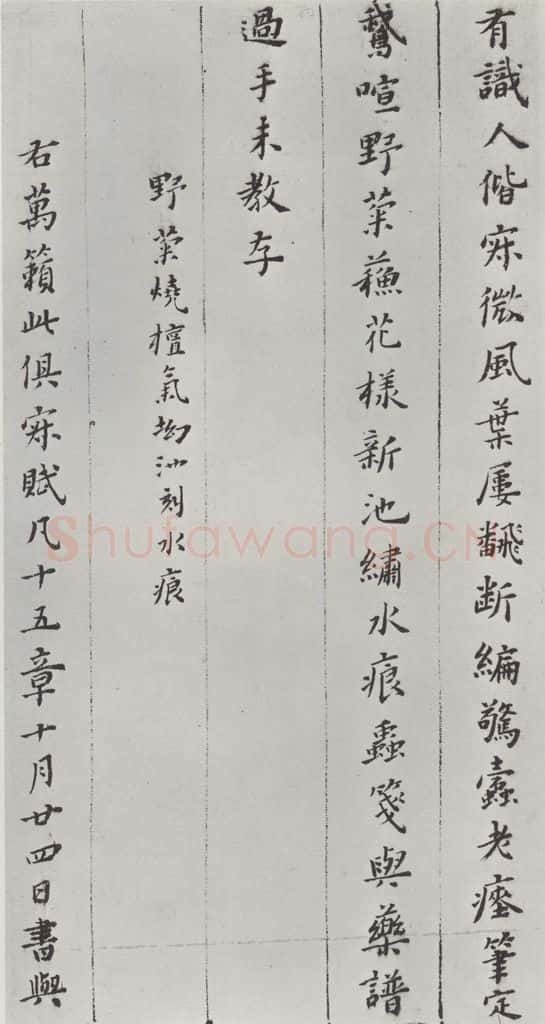 有識人偕寐微風葉屢飜断編驚蠹老瘞筆定
鵝喧野菜蘓花様新池繡水痕蟲箋與藥譜
過手未教存
野菜燒檀氣拗池刻水痕
右萬籟此俱寐賦凡十五章十月廿四日書與
Shufawang.CN